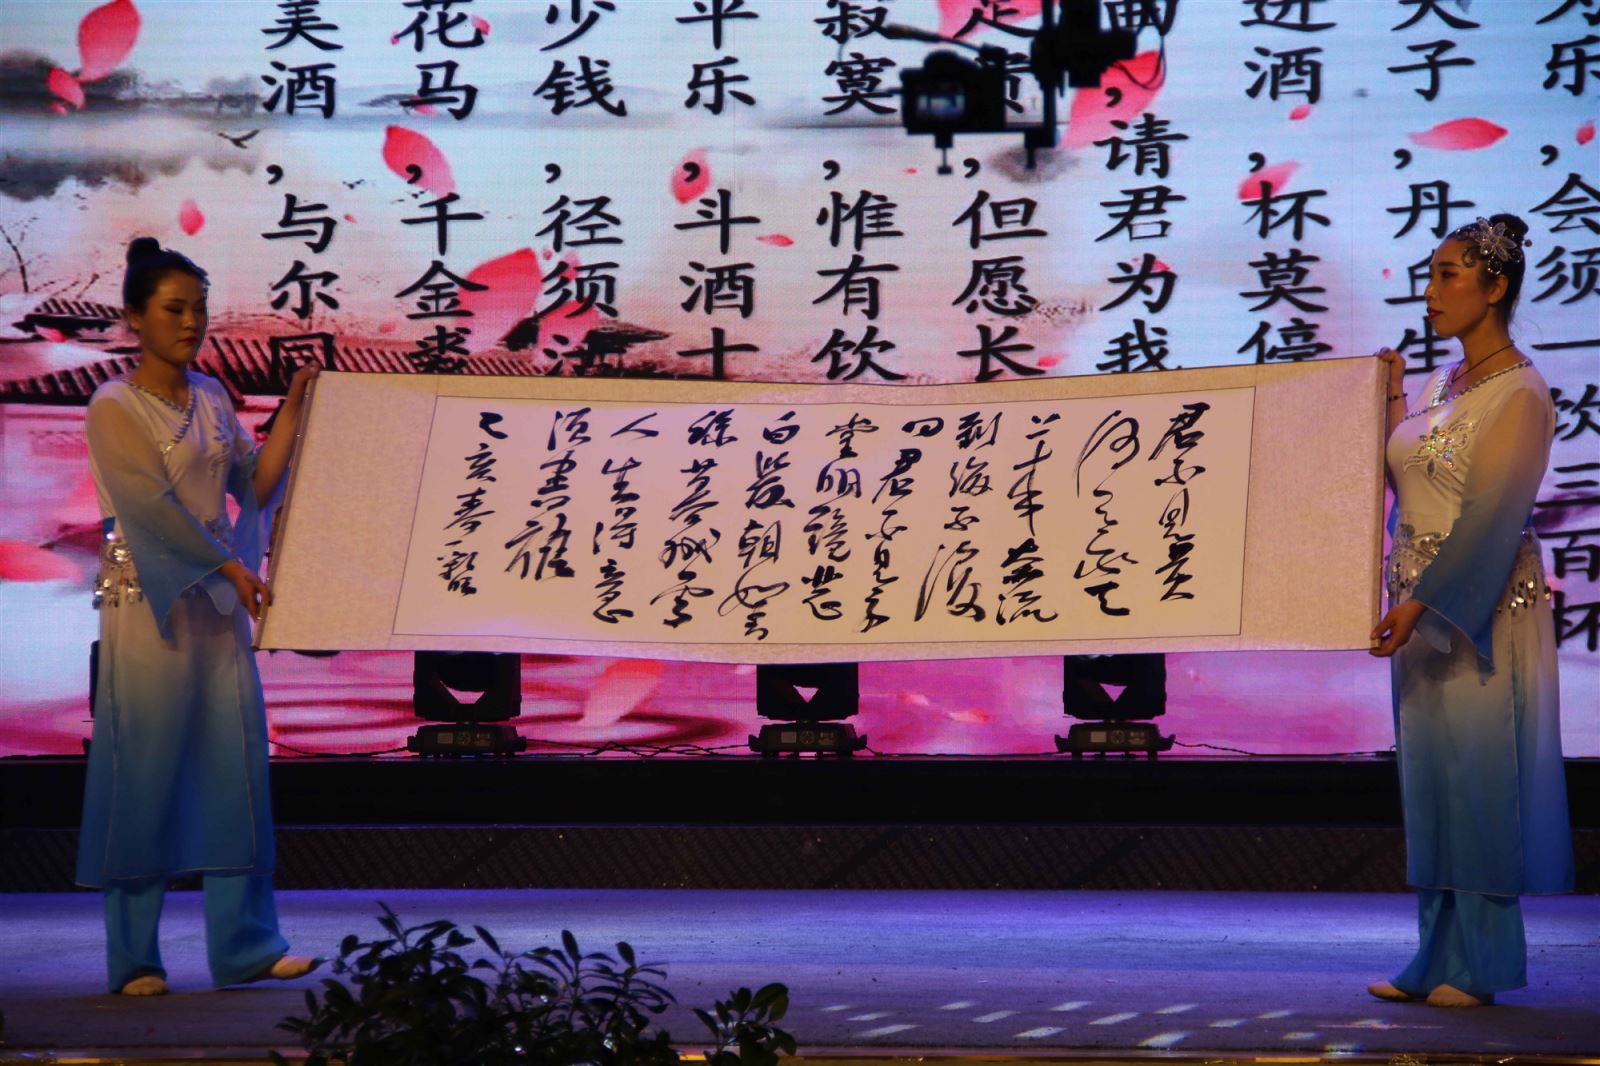 乐，会须一饮三百杯
子，丹丘生
进酒，杯莫停
，请君为我
贵，但愿长
寂寞，惟有饮
平乐，斗酒十
少钱，径须沽
花马，千金裘
美酒，与尔同
君不見黄
河之水天
上来奔流
到海不復
回君不見高
堂明鏡悲
白髮朝如青
絲暮成雪
人生得意
須盡歡
己亥春